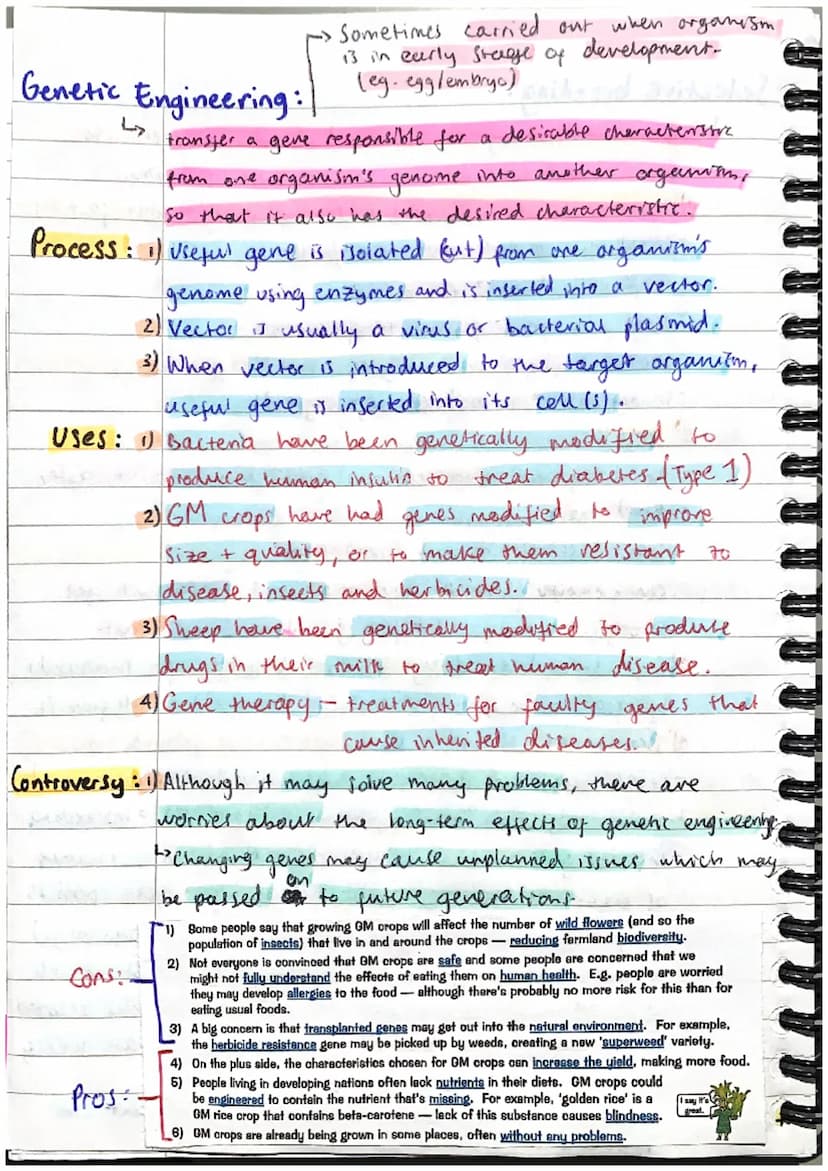 Sometimes carried out when organism
is in early stage of development.
(eg. egg/embryo)
Genetic Engineering:
transfer a gene responsible for a desirable characteristic
from one organism's genome into another organism,
so that it also has the desired characteristic.
Process: 1) Useful gene is isolated (cut) from one organism's
genome using enzymes and is inserted into a vector.
2) Vector is usually a virus or bacterial plasmid.
3) When vector is introduced to the target organism,
useful gene is inserted into its cell(s).
Uses: 1) Bacteria have been genetically modified to
produce human insulin to treat diabetes. (Type 1)
2) GM crops have had genes modified to improve
size + quality, or to make them resistant to
disease, insects and herbicides.
3) Sheep have been genetically modified to produce
drugs in their milk to treat human disease.
4) Gene therapy :- treatments for faulty genes that
cause inherited diseases.
Controversy: 1) Although it may solve many problems, there are
worries about the long-term effects of genetic engineering
Changing genes may cause unplanned issues which may
be passed on to future generations.
Cons:
1) Some people say that growing GM crops will affect the number of wild flowers (and so the
population of insects) that live in and around the crops — reducing farmland biodiversity.
2) Not everyone is convinced that GM crops are safe and some people are concerned that we
might not fully understand the effects of eating them on human health. E.g. people are worried
they may develop allergies to the food — although there's probably no more risk for this than for
eating usual foods.
3) A big concern is that transplanted genes may get out into the natural environment. For example,
the herbicide resistance gene may be picked up by weeds, creating a new 'superweed' variety.
Pros:
4) On the plus side, the characteristics chosen for GM crops can increase the yield, making more food.
5) People living in developing nations often lack nutrients in their diets. GM crops could
be engineered to contain the nutrient that's missing. For example, 'golden rice' is a
GM rice crop that contains beta-carotene — lack of this substance causes blindness.
I say it's
great.
6) GM crops are already being grown in some places, often without any problems.